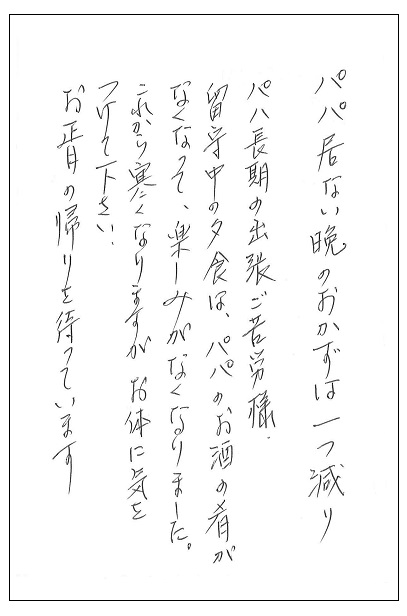 パパ居ない晩のおかずは一つ減り
パパ長期の出張ご苦労様.
留守中の夕食は、パパのお酒の肴が
なくなって、楽しみがなくなりました。
これから寒くなりますが お体に気を
つけて下さい.
お正月の帰りを待っています